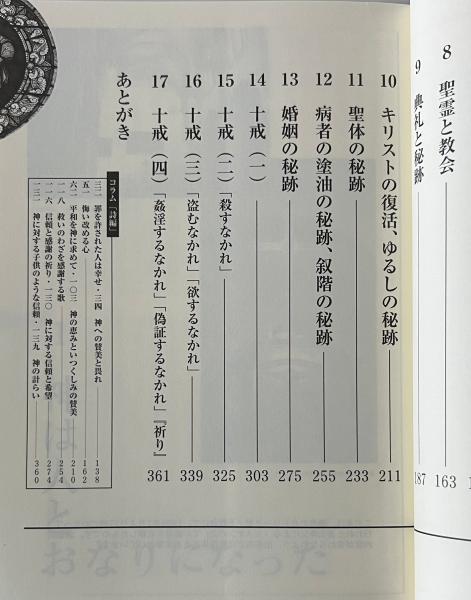 8 聖霊と教会 163
9 典礼と秘跡 187
10 キリストの復活、ゆるしの秘跡 211
11 聖体の秘跡 233
12 病者の塗油の秘跡、叙階の秘跡 255
13 婚姻の秘跡 275
14 十戒（一） 303
15 十戒（二）「殺すなかれ」 325
16 十戒（三）「盗むなかれ」「欲するなかれ」 339
17 十戒（四）「姦淫するなかれ」「偽証するなかれ」『祈り』 361
あとがき
コラム「詩編」
三二 罪を許された人は幸せ・三四 神への賛美と畏れ 138
五一 悔い改める心 162
六二 平和を神に求めて・一〇三 神の恵みといつくしみの賛美 210
一一八 救いのわざを感謝する歌 254
一一六 信頼と感謝の祈り・一三〇 神に対する信頼と希望 274
一三一 神に対する子供のような信頼・一三九 神の計らい 360
おなりになった